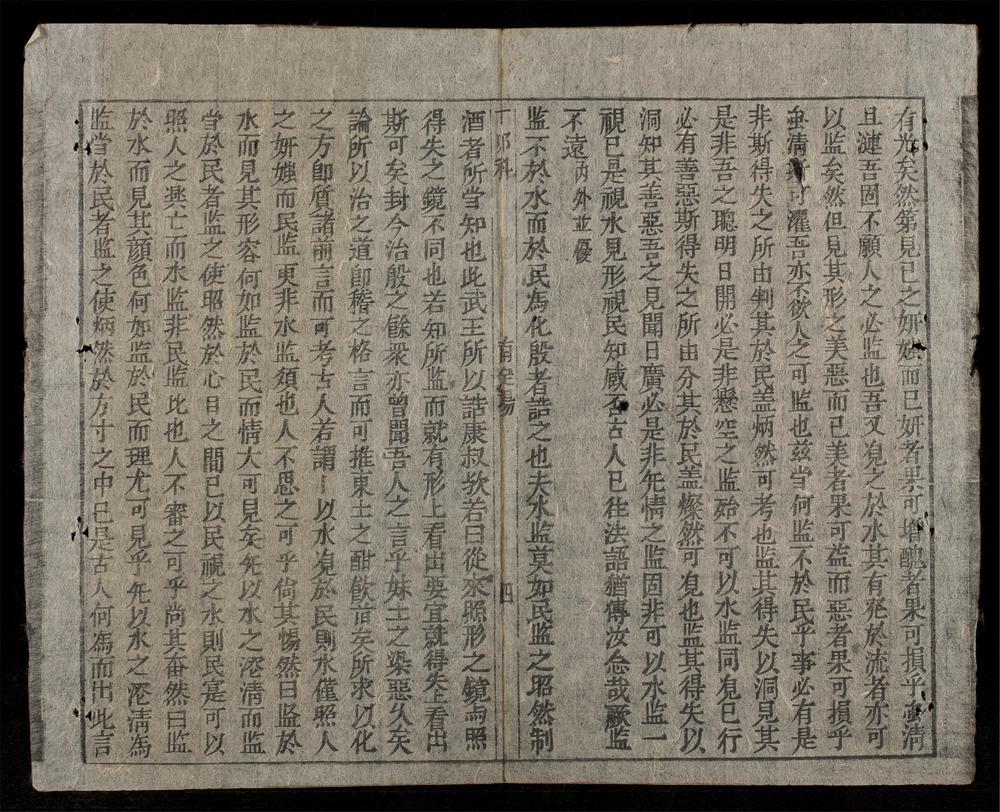 有光矣然第見己之妍媸而已妍者果可增醜者果可損乎虽清
且漣吾固不願人之必監也吾又覌之於水其有産於流者亦可
以監矣然但見其形之美惡而已美者果可益而惡者果可損乎
虽清斯可濯吾亦不欲人之可監也兹當何監不於民乎事必有是
非斯得失之所由判其於民盖炳然可考也監其得失以洞見其
是非吾之聰明日開必是非懸空之監始不可以水監同覌已行
必有善惡斯得失之所由分其於民盖燦然可覌也監其得失以
洞知其善惡吾之見聞日廣必是非无情之監固非可以水監一
視已是視水見形視民知臧否古人已往法語猶傳汝念哉厥監
不遠内外並優
監不於水而於民爲化殷者誥之也夫水監莫如民監之昭然制
酒者所當知也此武王所以誥康叔欤若曰從來照形之鏡与照
得失之鏡不同也若知所監而就有形上看出要宜就得失上看出
斯可矣封今治殷之餘衆亦曾聞吾人之言乎妹土之染惡久矣
論所以治之道即稽之格言而可推東土之酣飲苗矣所求以化
之方即質諸前言而可考古人若謂以水覌於民則水僅照人
之妍媸而民監更非水監須也人不思之可乎尚其惕然曰監於
水而見其形容何如監於民而情大可見矣无以水之澄清而監
當於民者監之使昭然於心目之間已以民視之水則民寔可以
照人之興亡而水監非民監比也人不審之可乎尚其奋然曰監
於水而見其顔色何如監於民而理尤可見乎无以水之澄清爲
監當於民者監之使炳然於方寸之中已是古人何爲而出此言
丁卯科
南定場
四